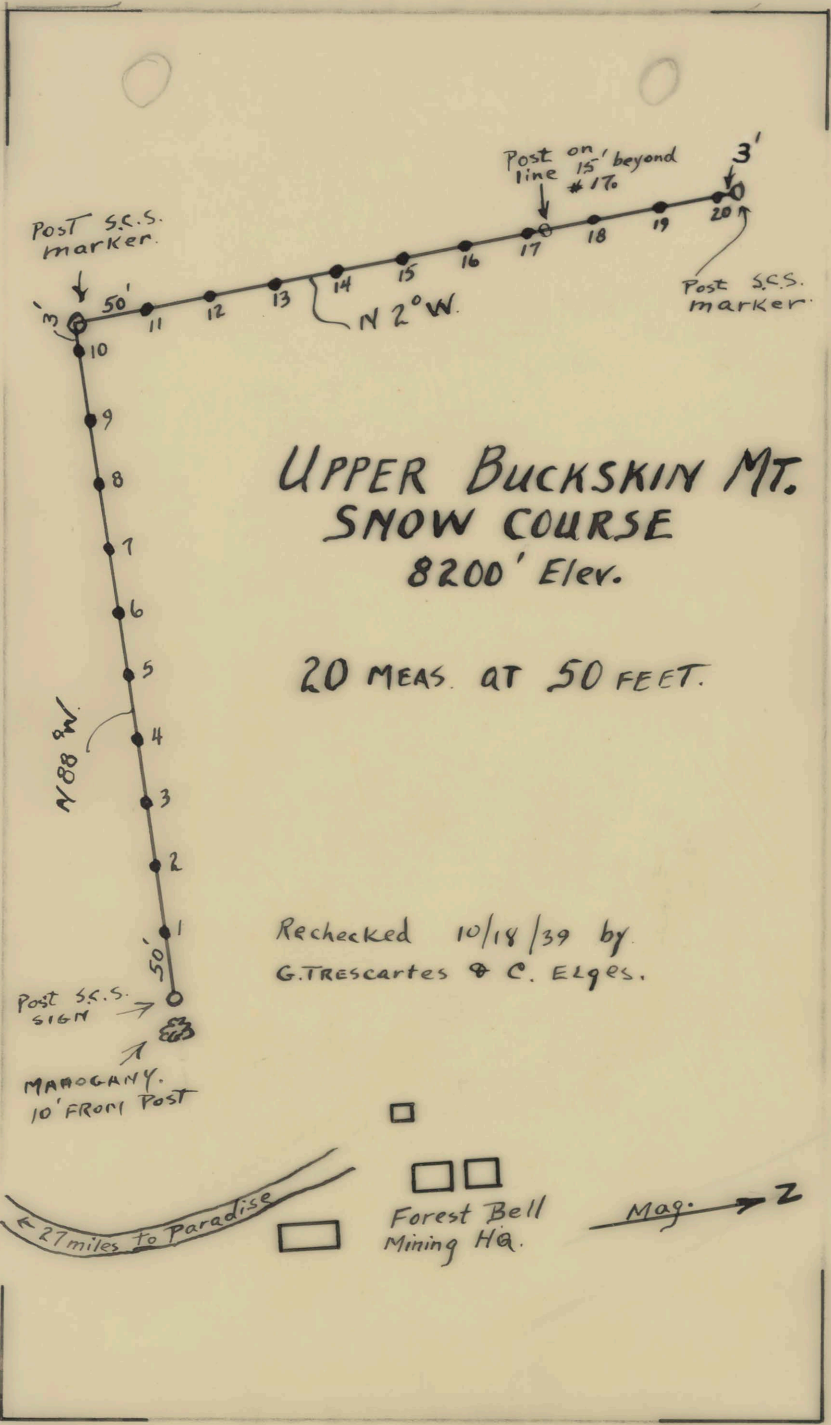 Post on
line 15' beyond
# 17.
3'
Post S.C.S.
marker.
3'
50'
11
12
13
14
15
16
17
18
19
20
N 2° W.
Post S.C.S.
marker.
10
9
8
7
6
5
4
3
2
1
UPPER BUCKSKIN MT.
SNOW COURSE
8200' Elev.
20 MEAS. AT 50 FEET.
N 88° W.
50'
Rechecked 10/18/39 by
G. TREScartes & C. ELges.
Post S.C.S.
SIGN
MAHOGANY.
10' FROM POST
← 27 miles to Paradise
Forest Bell
Mining HQ.
Mag.
N